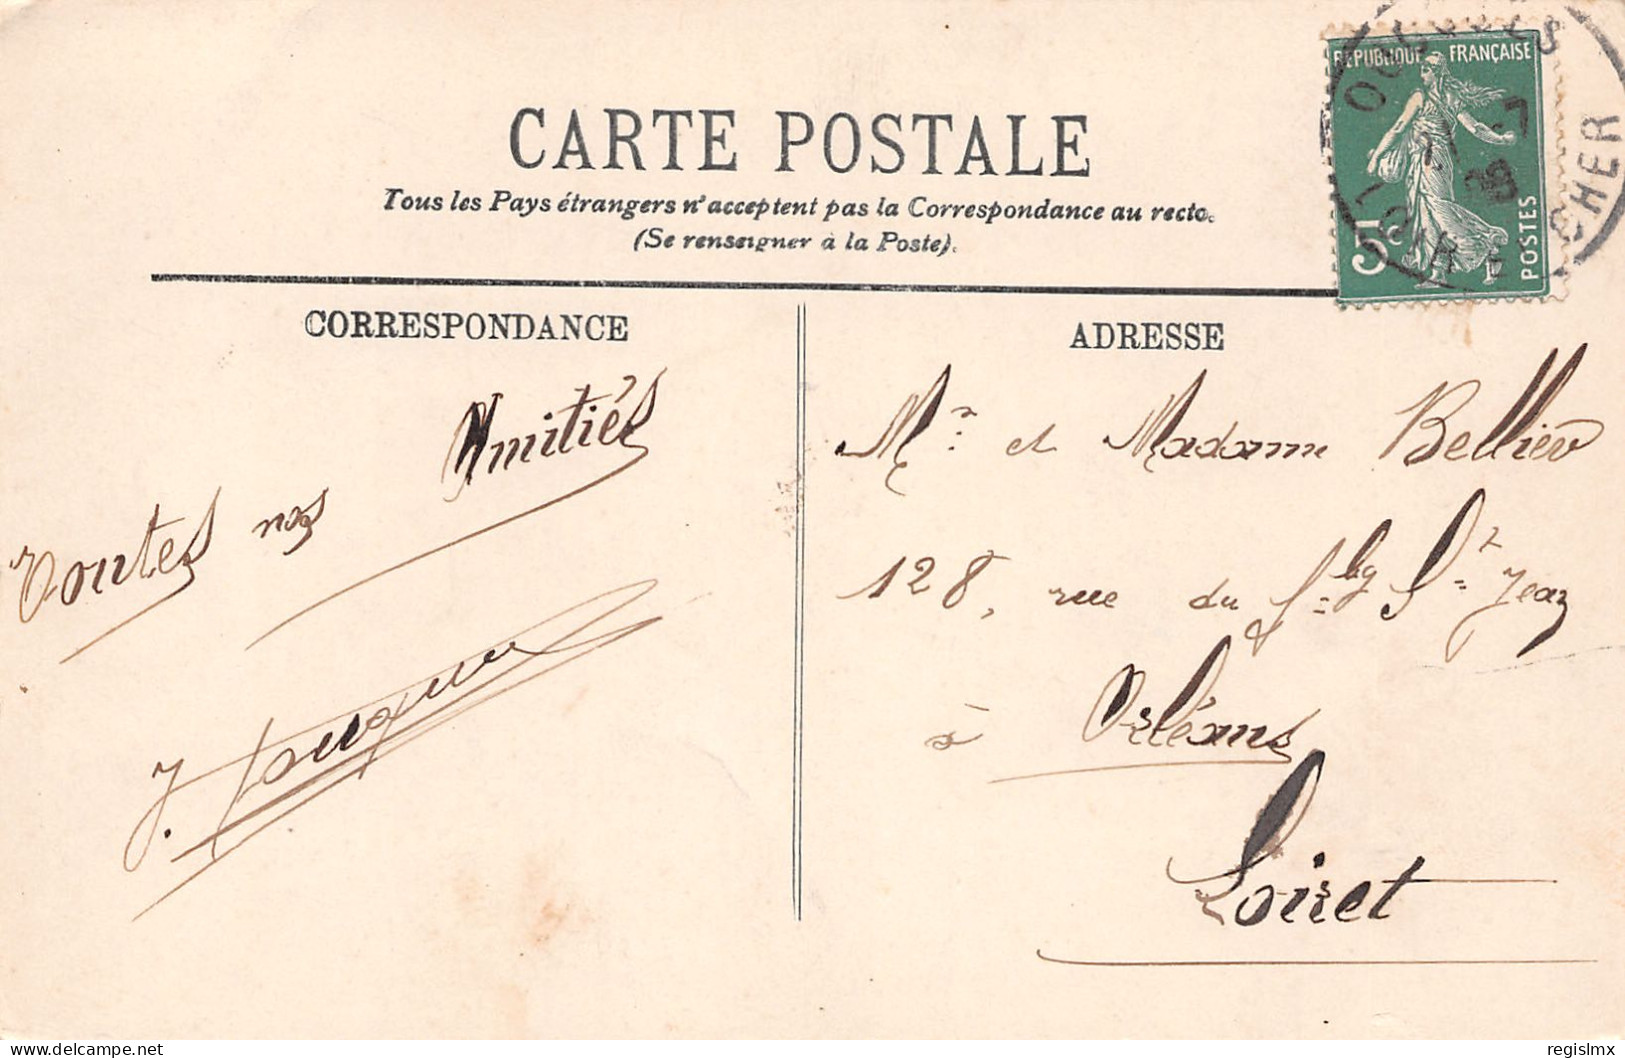 CARTE POSTALE
Tous les Pays étrangers n'acceptent pas la Correspondance au recto.
(Se renseigner à la Poste).
REPUBLIQUE FRANÇAISE
5c POSTES
LOIR CHER
CORRESPONDANCE
Toutes nos Amitiés
J.
ADRESSE
Mr et Madame Bellier
128, rue du fbg St Jean
à Orléans
Loiret
delcampe.net
regislmx